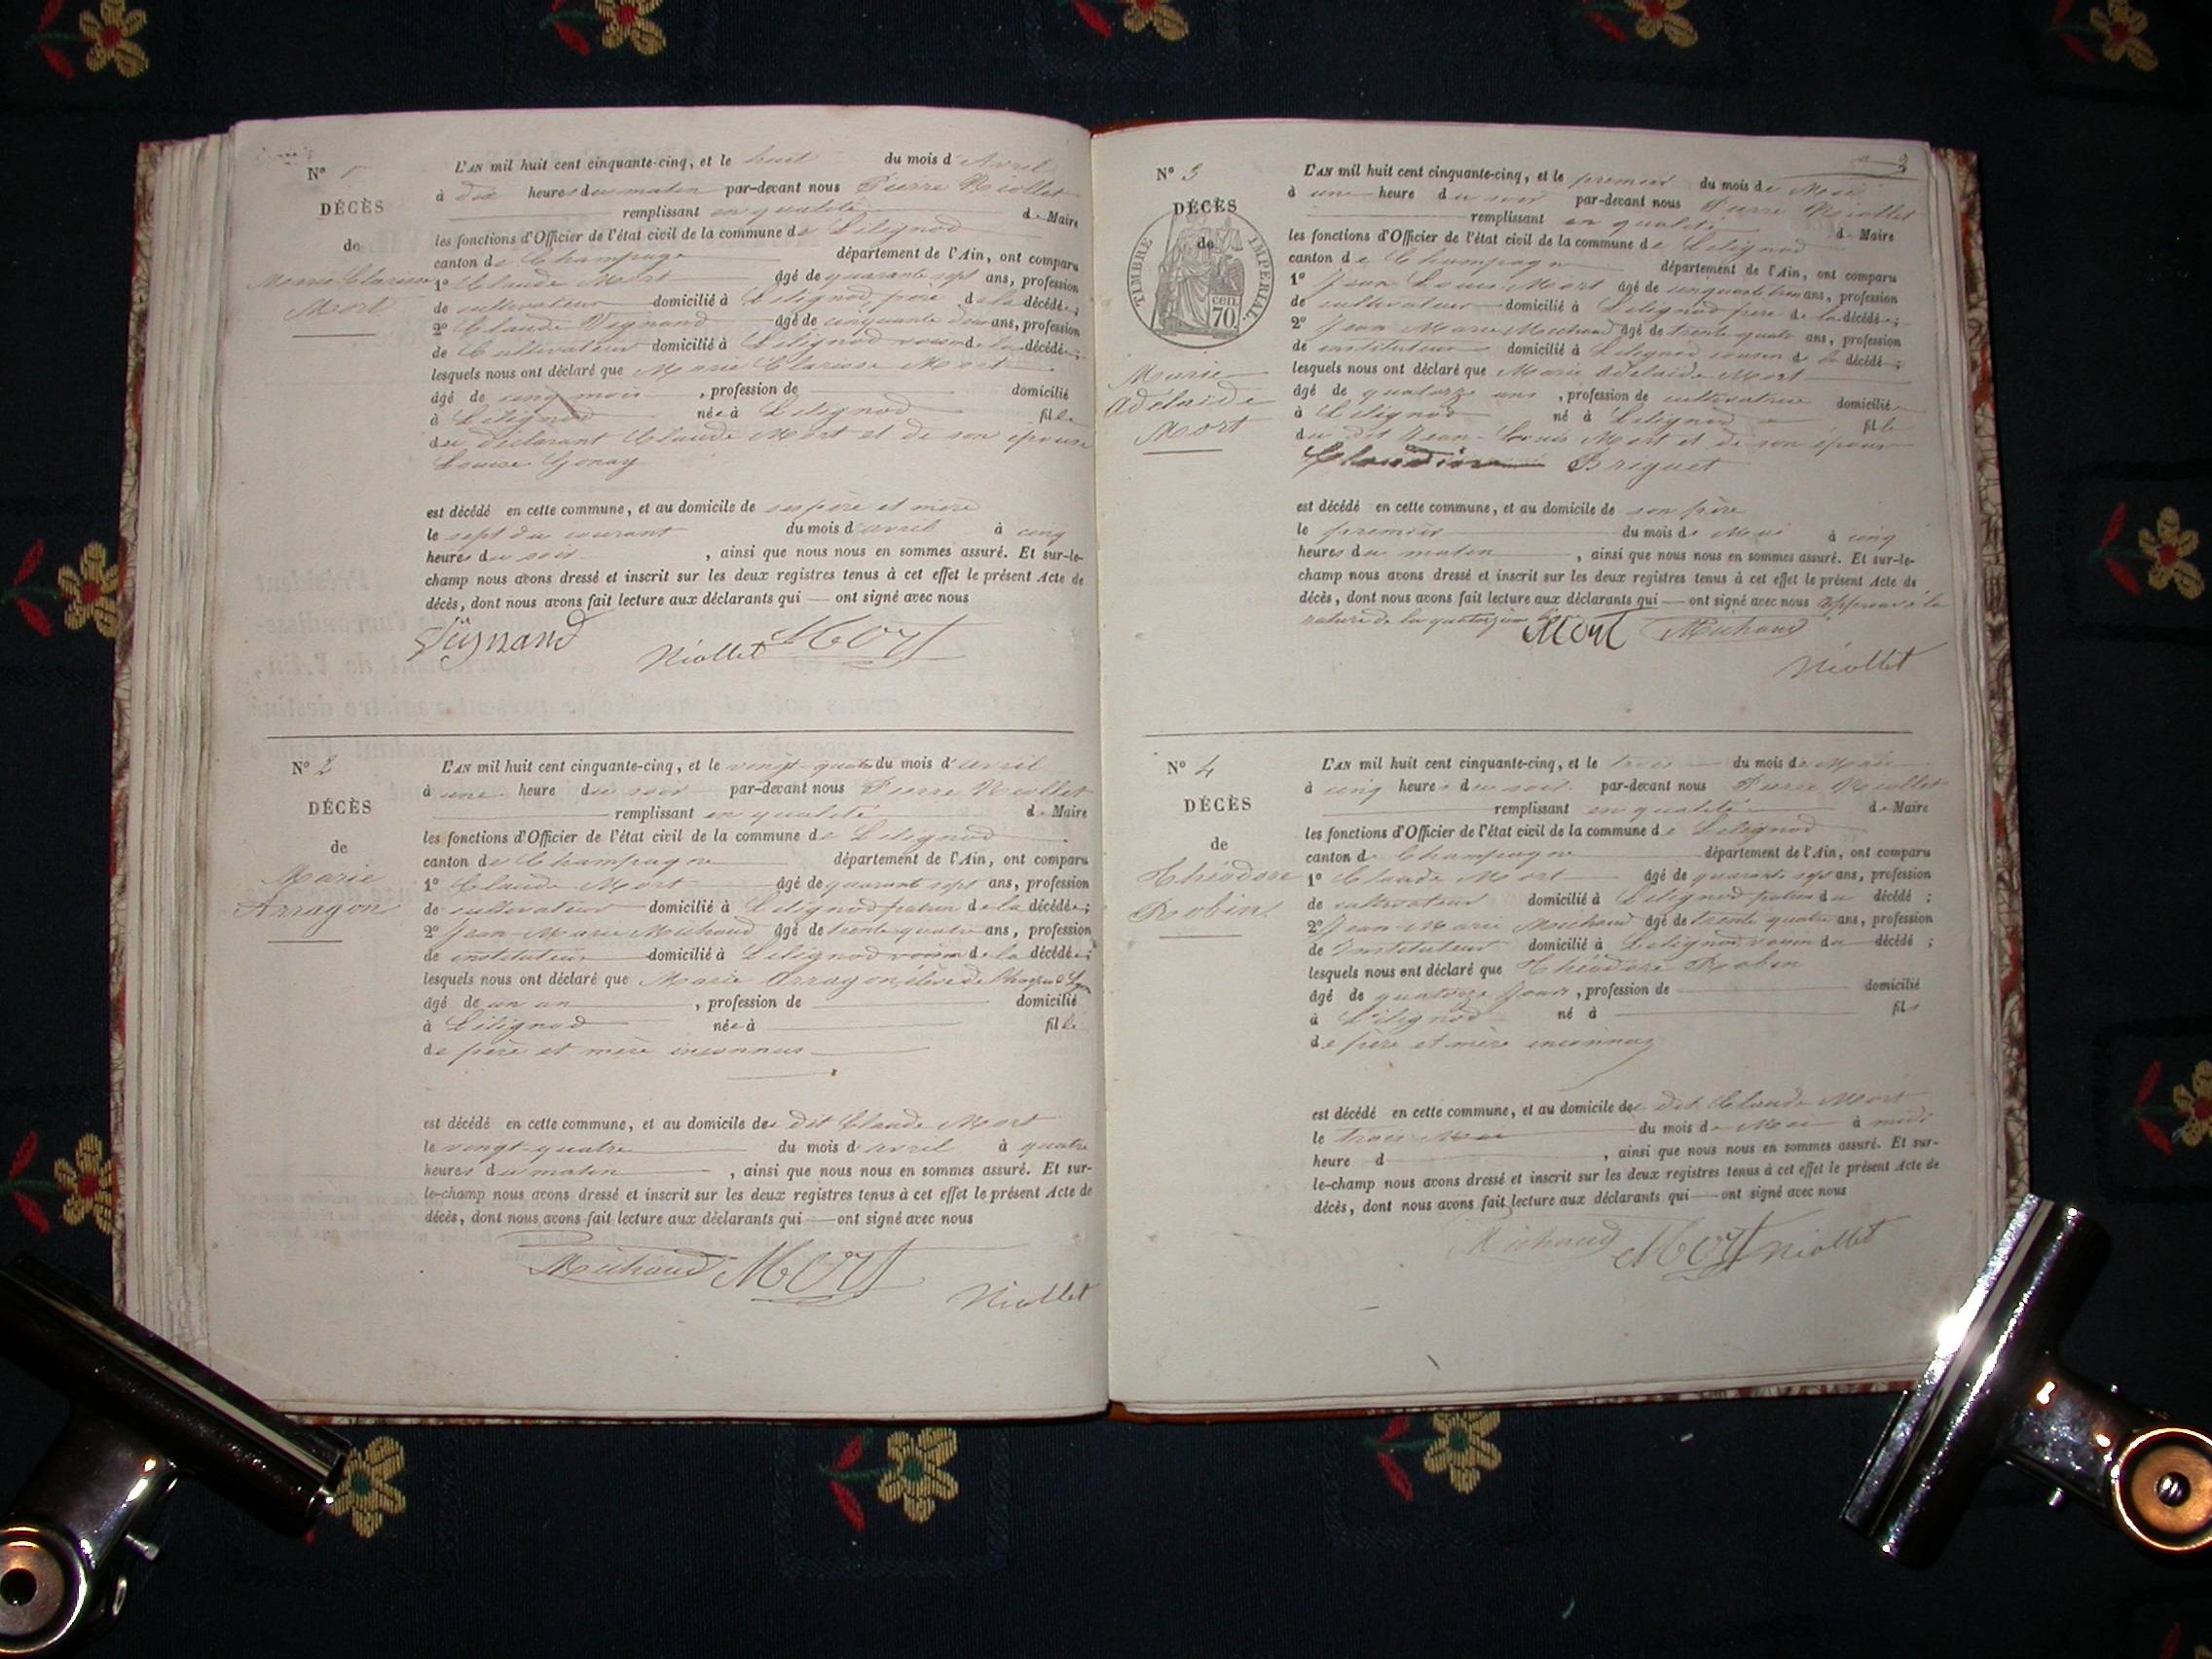 N° 1
DÉCÈS
de
Marie Clarisse
Mort
L'AN mil huit cent cinquante-cinq, et le huit du mois d'Avril
à dix heures du matin par-devant nous Pierre Niollet
remplissant en qualité de Maire
les fonctions d'Officier de l'état civil de la commune de Lilignod
canton de Champagne département de l'Ain, ont comparu
1° Claude Mort âgé de quarante sept ans, profession
de cultivateur domicilié à Lilignod, père de la décédée;
2° Claude Vignand âgé de cinquante deux ans, profession
de Cultivateur domicilié à Lilignod voisin de la décédée;
lesquels nous ont déclaré que Marie Clarisse Mort
âgé de cinq mois, profession de domicilié
à Lilignod née à Lilignod fille
du déclarant Claude Mort et de son épouse
Louise Gonay
est décédé en cette commune, et au domicile de ses père et mère
le sept du courant du mois d'avril à cinq
heures du soir, ainsi que nous nous en sommes assuré. Et sur-le-
champ nous avons dressé et inscrit sur les deux registres tenus à cet effet le présent Acte de
décès, dont nous avons fait lecture aux déclarants qui — ont signé avec nous
Vignand Niollet Mort
N° 2
DÉCÈS
de
Marie
Arragon
L'AN mil huit cent cinquante-cinq, et le vingt-quatre du mois d'avril
à une heure du soir par-devant nous Pierre Niollet
remplissant en qualité de Maire
les fonctions d'Officier de l'état civil de la commune de Lilignod
canton de Champagne département de l'Ain, ont comparu
1° Claude Mort âgé de quarante sept ans, profession
de cultivateur domicilié à Lilignod patron de la décédée;
2° Jean-Marie Michaud âgé de trente quatre ans, profession
de instituteur domicilié à Lilignod voisin de la décédée;
lesquels nous ont déclaré que Marie Arragon élève de l'hospice de Lyon
âgé de un an, profession de domicilié
à Lilignod née à fille
de père et mère inconnus
est décédé en cette commune, et au domicile du dit Claude Mort
le vingt-quatre du mois d'avril à quatre
heures du matin, ainsi que nous nous en sommes assuré. Et sur-
le-champ nous avons dressé et inscrit sur les deux registres tenus à cet effet le présent Acte de
décès, dont nous avons fait lecture aux déclarants qui — ont signé avec nous
Michaud Mort
Niollet
2
N° 3
DÉCÈS
de
TIMBRE IMPERIAL
70 cen.
Marie
Adélaïde
Mort
L'AN mil huit cent cinquante-cinq, et le premier du mois de Mai
à une heure du soir par-devant nous Pierre Niollet
remplissant en qualité de Maire
les fonctions d'Officier de l'état civil de la commune de Lilignod
canton de Champagne département de l'Ain, ont comparu
1° Jean Louis Mort âgé de cinquante trois ans, profession
de cultivateur domicilié à Lilignod père de la décédée;
2° Jean Marie Michaud âgé de trente quatre ans, profession
de instituteur domicilié à Lilignod cousin de la décédé;
lesquels nous ont déclaré que Marie Adélaïde Mort
âgé de quatorze ans, profession de cultivatrice domicilié
à Lilignod né à Lilignod fille
du dit Jean-Louis Mort et de son épouse
Claudine Briguet
est décédé en cette commune, et au domicile de son père
le premier du mois de Mai à cinq
heures du matin, ainsi que nous nous en sommes assuré. Et sur-le-
champ nous avons dressé et inscrit sur les deux registres tenus à cet effet le présent Acte de
décès, dont nous avons fait lecture aux déclarants qui — ont signé avec nous Approuvé la
rature de la quatorzième
Mort Michaud
Niollet
N° 4
DÉCÈS
de
Théodore
Robin
L'AN mil huit cent cinquante-cinq, et le trois du mois de Mai
à cinq heures du soir par-devant nous Pierre Niollet
remplissant en qualité de Maire
les fonctions d'Officier de l'état civil de la commune de Lilignod
canton de Champagne département de l'Ain, ont comparu
1° Claude Mort âgé de quarante sept ans, profession
de cultivateur domicilié à Lilignod patron du décédé;
2° Jean-Marie Michaud âgé de trente quatre ans, profession
de Instituteur domicilié à Lilignod voisin du décédé;
lesquels nous ont déclaré que Théodore Robin
âgé de quatorze jours, profession de domicilié
à Lilignod né à fils
de père et mère inconnus
est décédé en cette commune, et au domicile du dit Claude Mort
le trois Mai du mois de Mai à midi
heure d, ainsi que nous nous en sommes assuré. Et sur-
le-champ nous avons dressé et inscrit sur les deux registres tenus à cet effet le présent Acte de
décès, dont nous avons fait lecture aux déclarants qui — ont signé avec nous
Michaud Mort Niollet